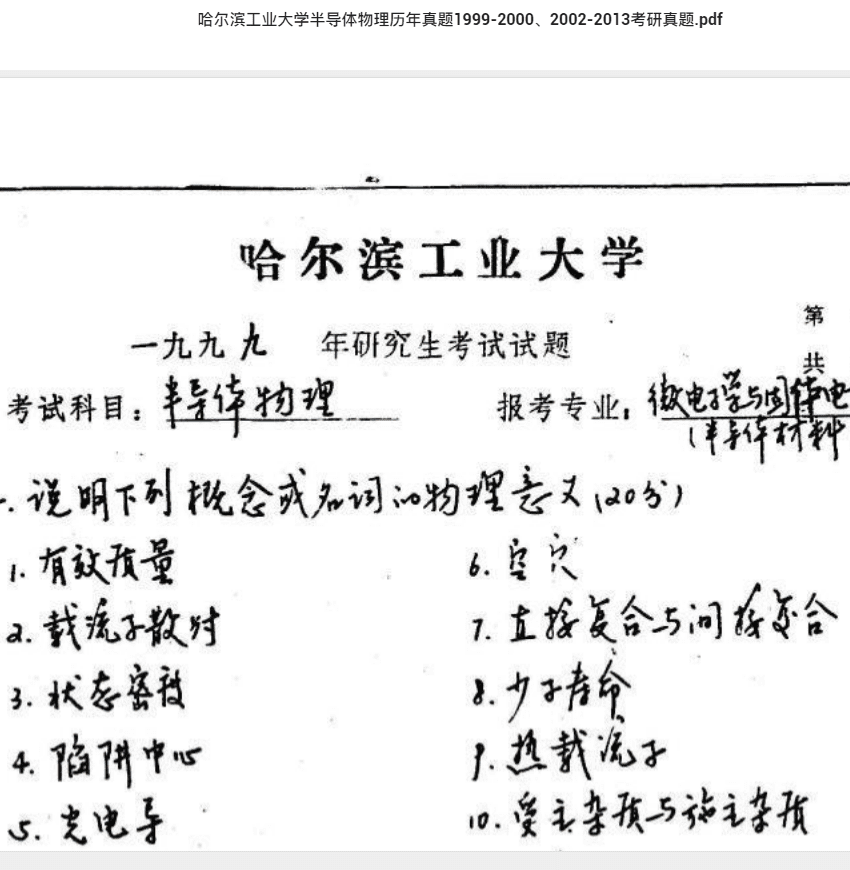 哈尔滨工业大学半导体物理历年真题1999-2000、2002-2013考研真题.pdf
哈尔滨工业大学
第
一九九九 年研究生考试试题
共
考试科目：半导体物理 报考专业：微电子学与固体电
(半导体材料
一.说明下列概念或名词的物理意义(20分)
1. 有效质量 6. 空穴
2. 载流子散射 7. 直接复合与间接复合
3. 状态密度 8. 少子寿命
4. 陷阱中心 9. 热载流子
5. 光电导 10. 受主杂质与施主杂质